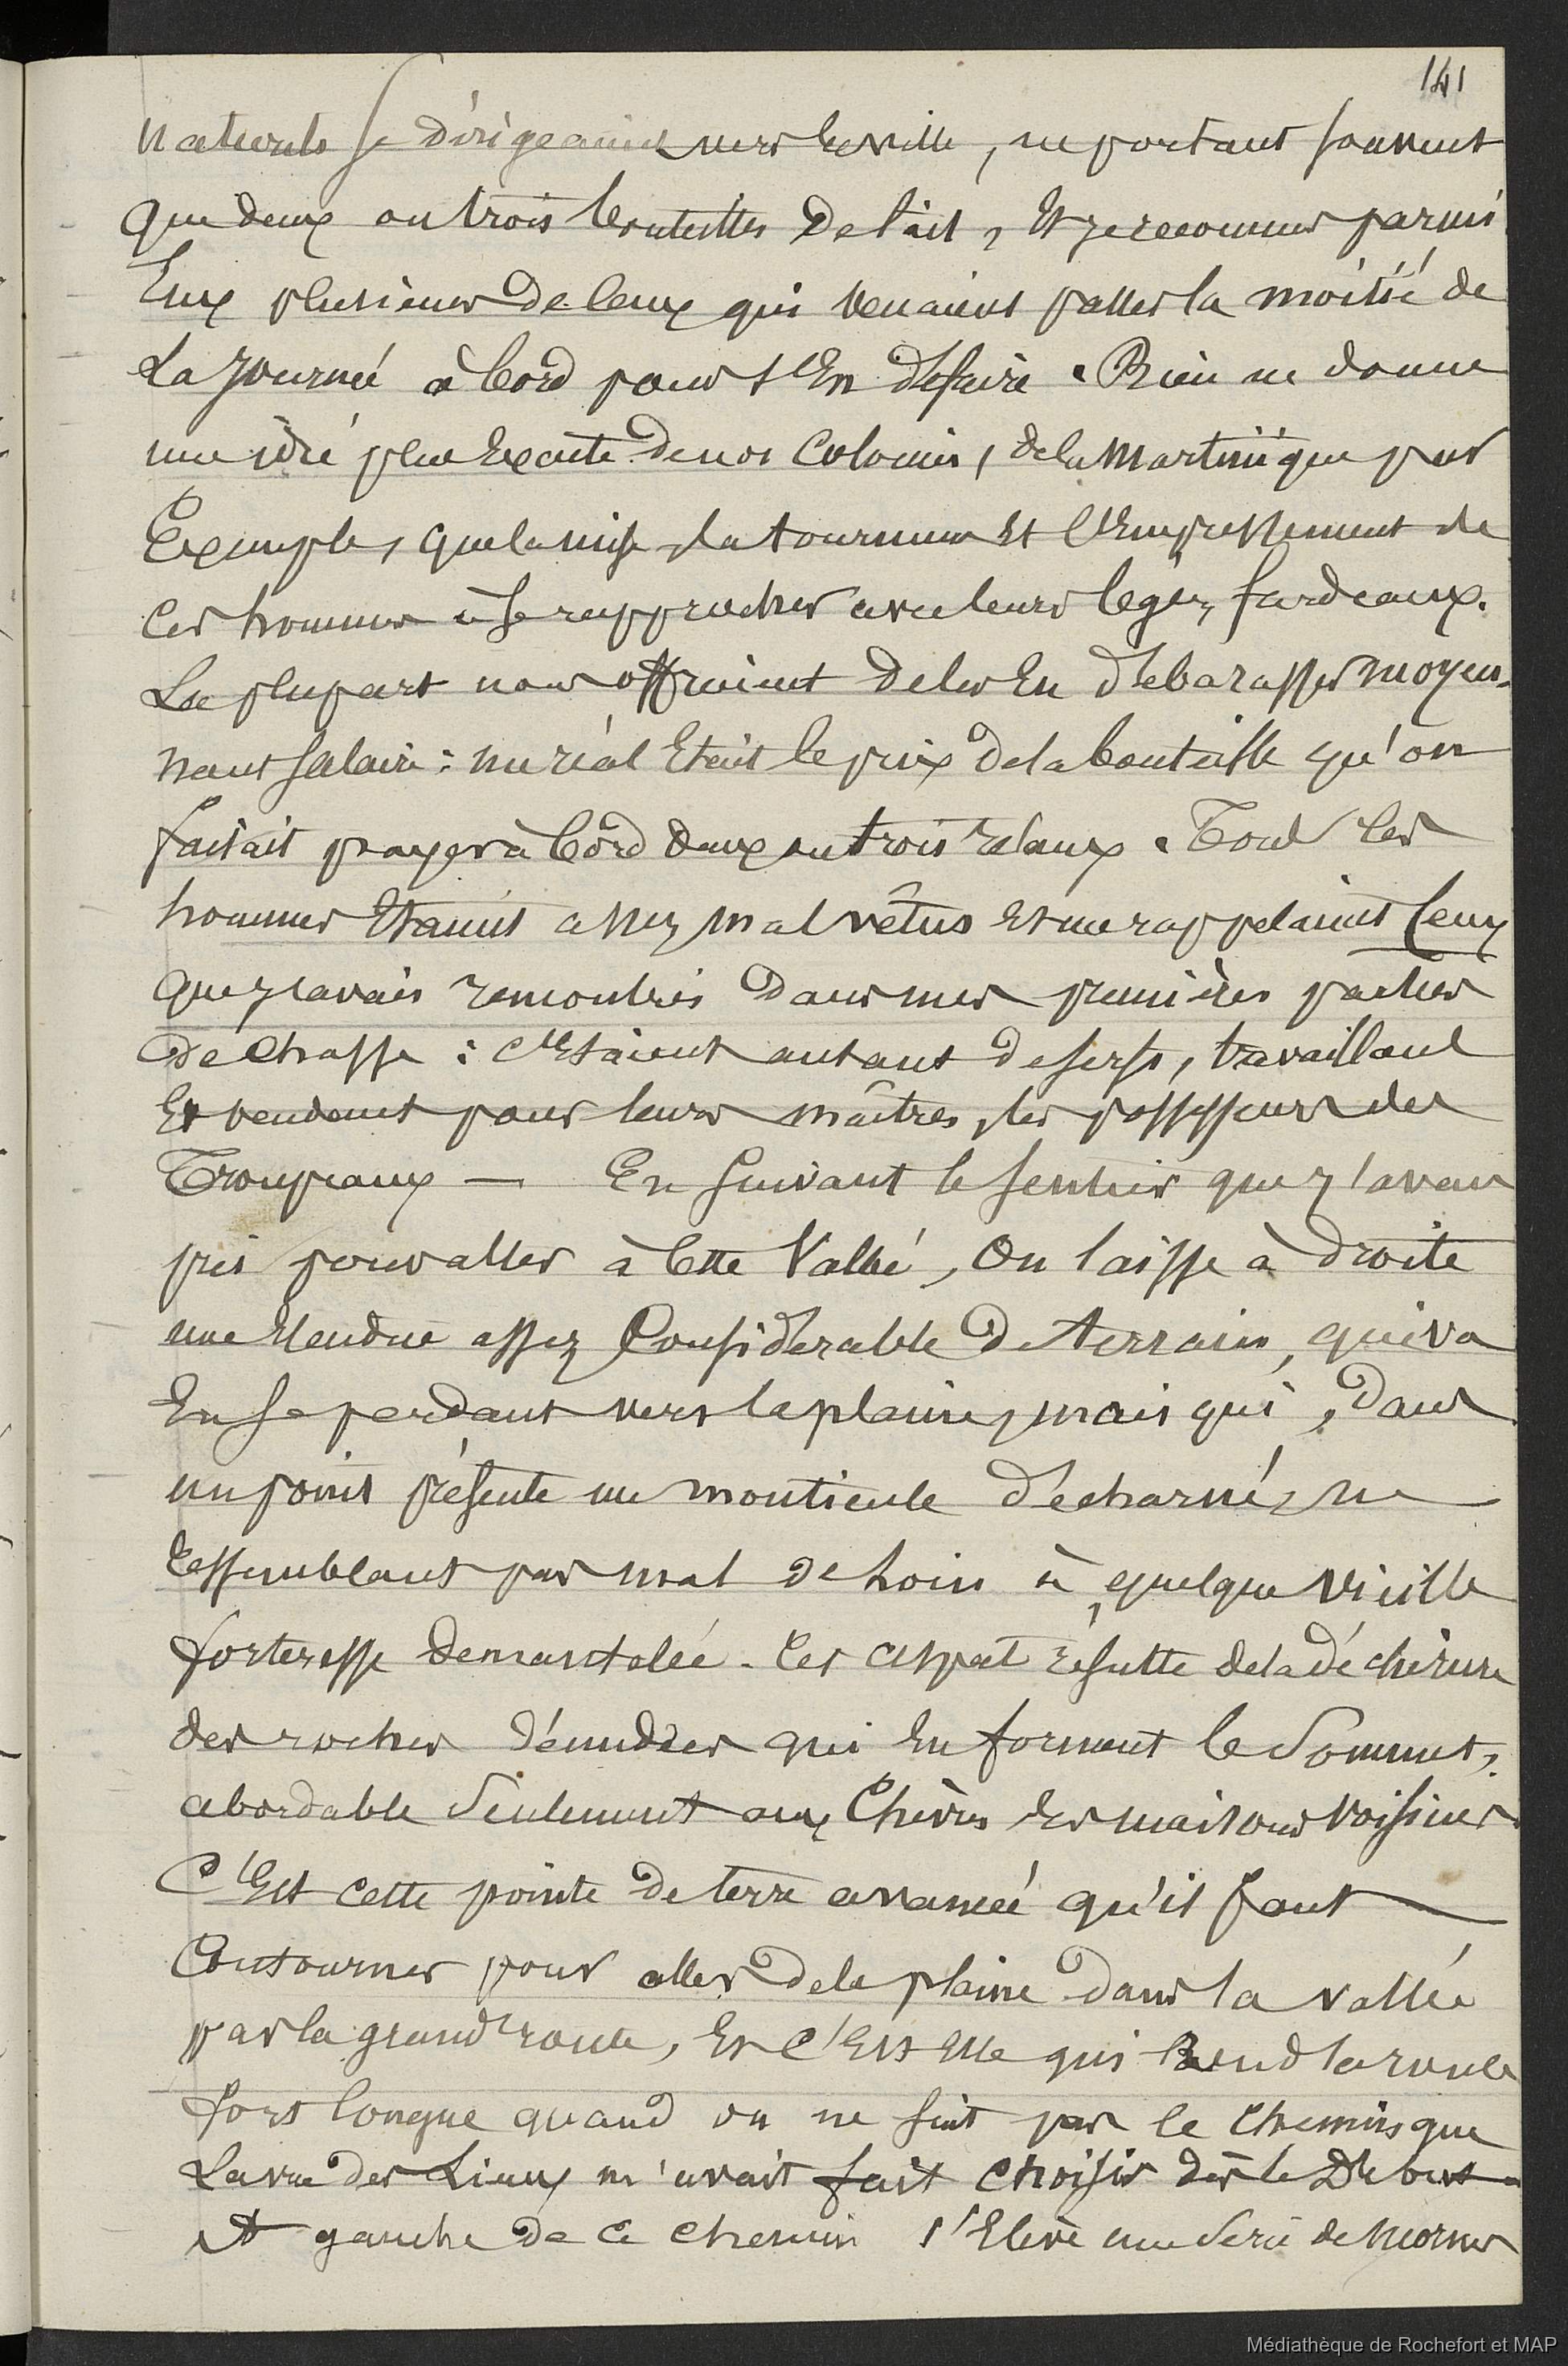 141
naturels se dirigeaient vers la ville, ne portant souvent
que deux ou trois bouteilles de lait, Et je reconnus parmi
Eux plusieurs de ceux qui venaient passer la moitié de
La journée à bord pour s'En défaire. Rien ne donne
une idée plus Exacte de nos colonies, de la Martinique par
Exemple, que la mise, la tournure Et l'Empressement de
ces hommes à se rapprocher avec leurs légers fardeaux.
La plupart nous offraient de les En débarasser moyen-
nant salaire : un réal Etait le prix de la bouteille qu'on
faisait payer à bord deux ou trois réaux. Tous les
hommes Etaient assez mal vêtus Et me rappelaient ceux
que j'avais rencontrés dans mes premières parties
de chasse : c'Etaient autant de serfs, travaillant
Et vendant pour leurs maîtres, les possesseurs des
Troupeaux — En suivant le sentier que j'avais
pris pour aller à cette Vallée, On laisse à droite
une Etendue assez Considerable de terrain, qui va
En se perdant vers la plaine, mais qui, dans
un point présente un monticule décharné, ne
ressemblant pas mal de loin à quelque vieille
forteresse demantelée. Cet aspect résulte de la déchirure
des rochers dénudés qui En forment le Sommet,
abordable Seulement aux Chèvres des maisons voisines.
C'Est cette pointe de terre avancée qu'il faut
Contourner pour aller de la plaine dans la vallée
par la grand'route, Et C'Est Elle qui Rend la route
fort longue quand on ne suit pas le chemin que
La vue des Lieux m'avait fait choisir dès le Début.
A gauche de ce chemin s'Elève une Série de mornes
Médiathèque de Rochefort et MAP